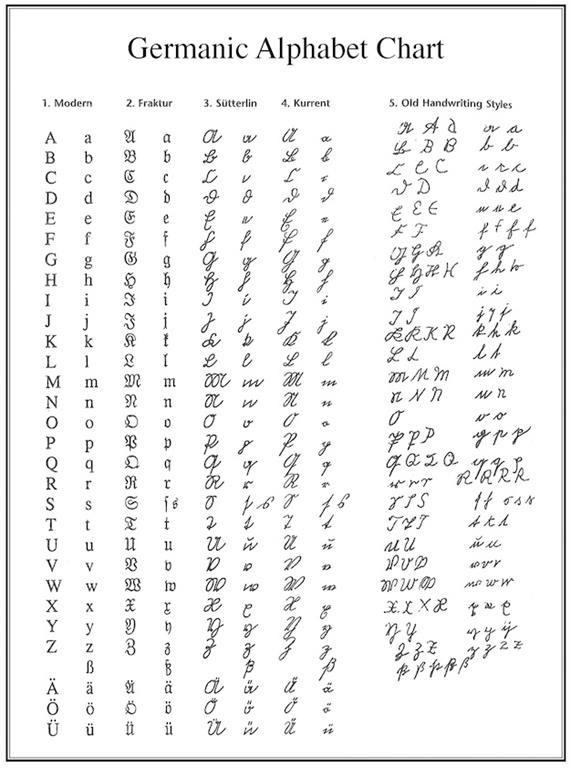 Germanic Alphabet Chart
1. Modern 2. Fraktur 3. Sütterlin 4. Kurrent 5. Old Handwriting Styles
A a A a A a A a
B b B b B b B b
C c C c C c C c
D d D d D d D d
E e E e E e E e
F f F f F f F f
G g G g G g G g
H h H h H h H h
I i I i I i I i
J j J j J j J j
K k K k K k K k
L l L l L l L l
M m M m M m M m
N n N n N n N n
O o O o O o O o
P p P p P p P p
Q q Q q Q q Q q
R r R r R r R r
S s S ſ s S ſ s S ſ s
T t T t T t T t
U u U u U u U u
V v V v V v V v
W w W w W w W w
X x X x X x X x
Y y Y y Y y Y y
Z z Z z Z z Z z
ß ß ß ß
Ä ä Ä ä Ä ä Ä ä
Ö ö Ö ö Ö ö Ö ö
Ü ü Ü ü Ü ü Ü ü